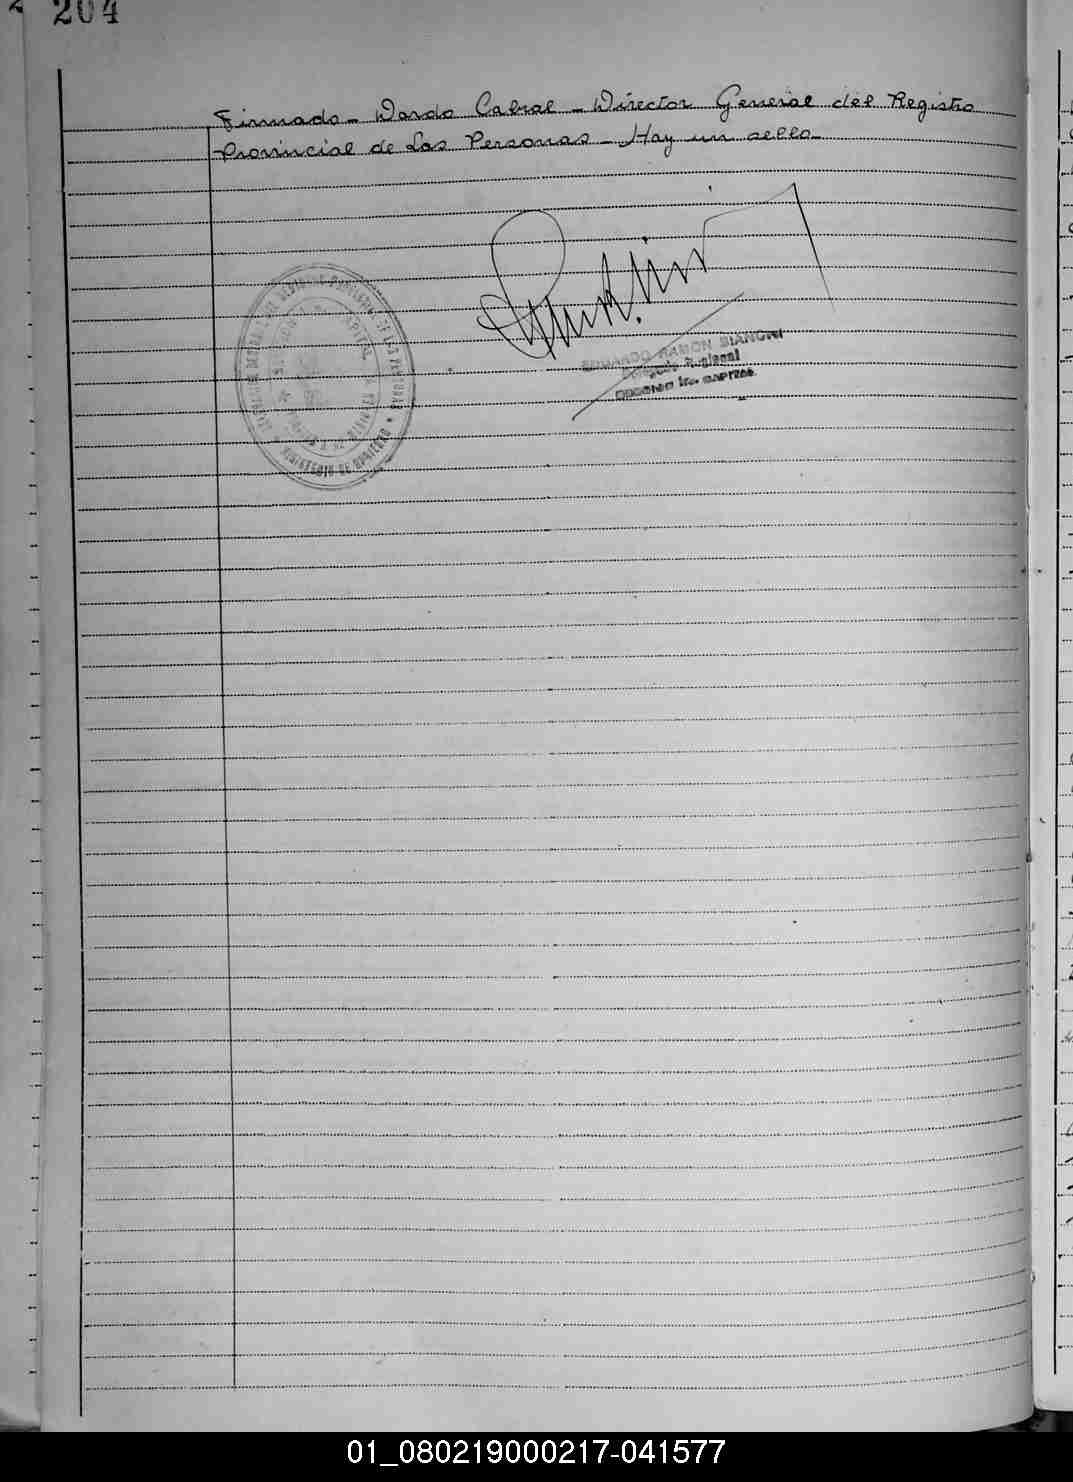 204
Firmado - Dardo Cabral - Director General del Registro
Provincial de Las Personas - Hay un sello -
EDUARDO RAMON BIANCHI
Regional
MINISTERIO DE GOBIERNO
CAPITAL
01_080219000217-041577